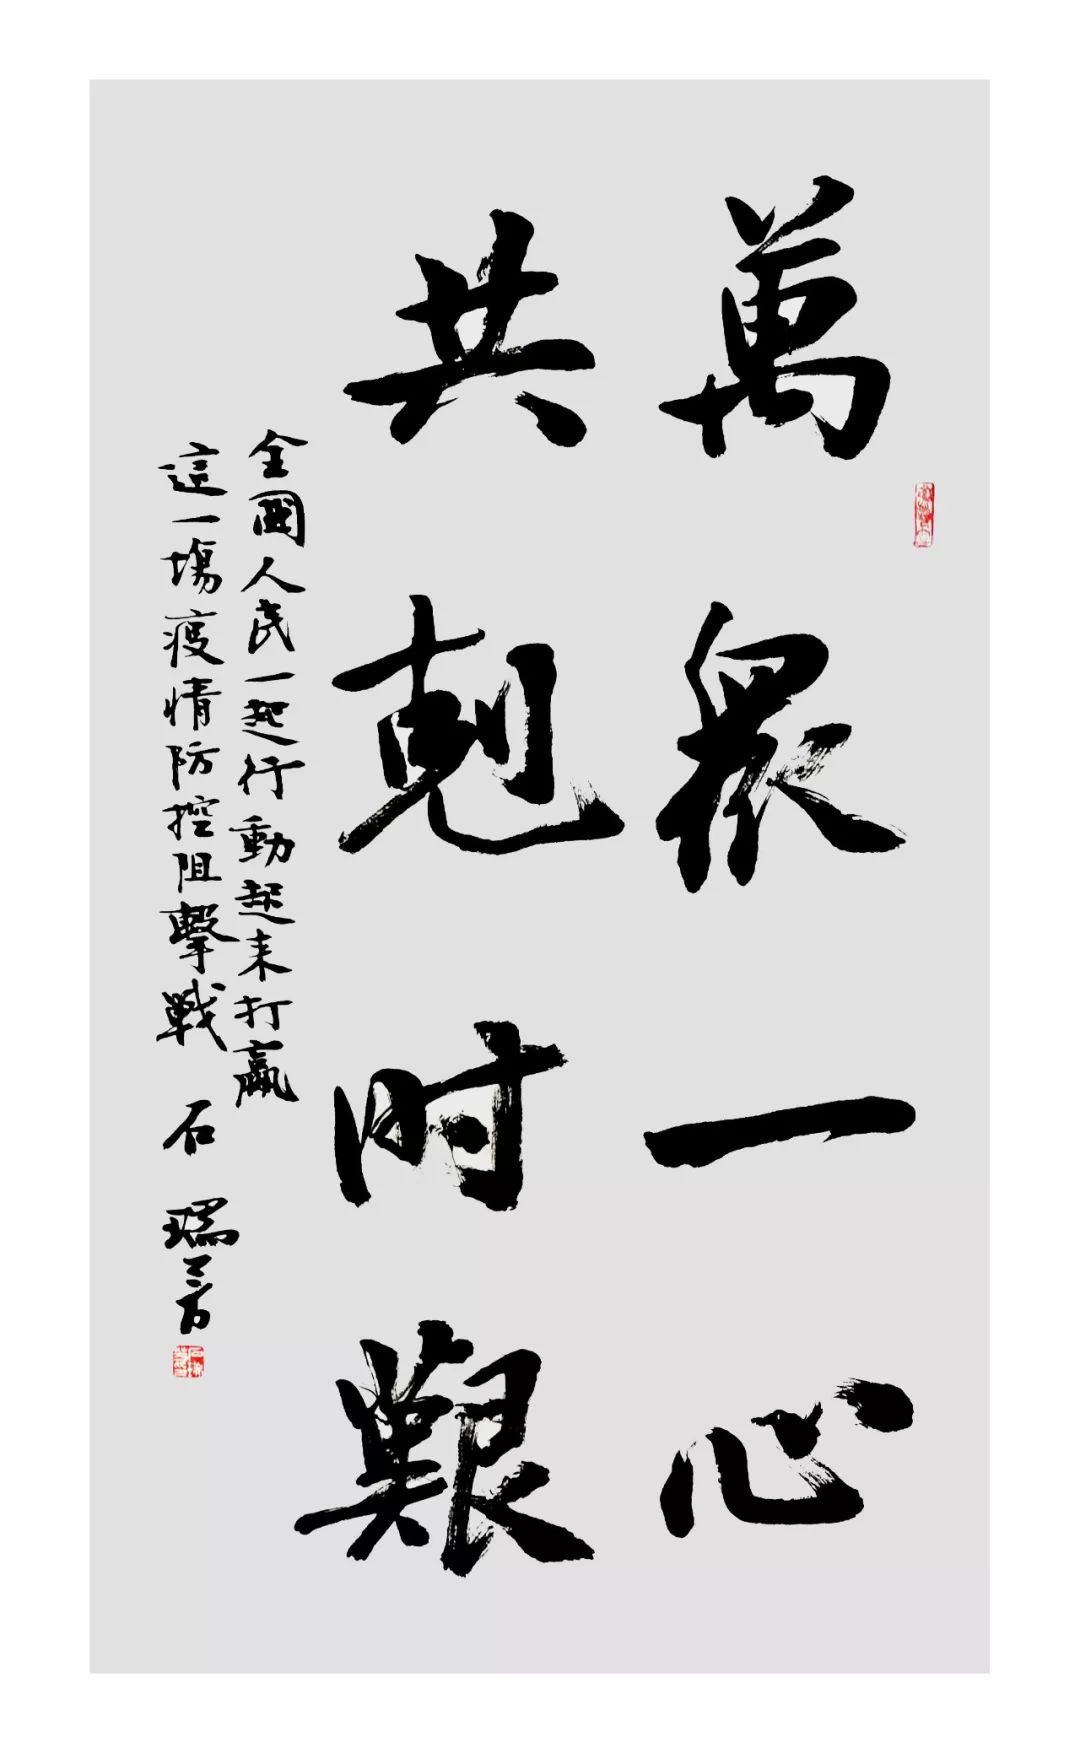 萬眾一心
共剋时艱
全國人民一起行動起来打贏
這一場疫情防控阻擊戰
石瑞芳